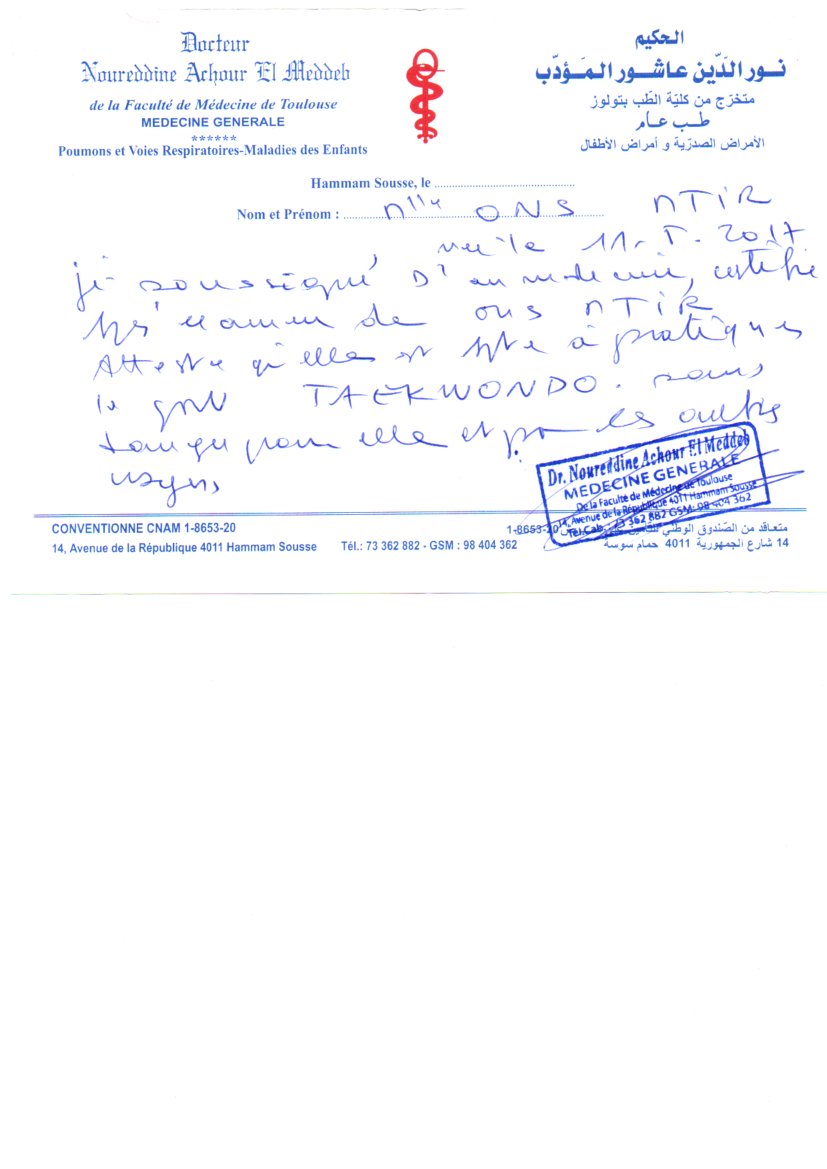 Docteur
Noureddine Achour El Meddeb
de la Faculté de Médecine de Toulouse
MEDECINE GENERALE
******
Poumons et Voies Respiratoires-Maladies des Enfants
الحكيم
نور الدّين عاشور المؤدّب
متخرّج من كليّة الطّب بتولوز
طب عام
الأمراض الصدريّة و أمراض الأطفال
Hammam Sousse, le
Nom et Prénom : Mlle ONS NTIR
vu le 11.5.2017
je soussigné Dr en médecine, certifie
examen de ons NTIR
Atteste qu'elle est apte à pratiquer
le TAEKWONDO. sans
danger pour elle et pr les autres
Dr. Noureddine Achour El Meddeb
MEDECINE GENERALE
De la Faculté de Médecine de Toulouse
14, Avenue de la République 4011 Hammam Sousse
Tél Cab. : 73 362 882 GSM: 98 404 362
CONVENTIONNE CNAM 1-8653-20
14, Avenue de la République 4011 Hammam Sousse Tél.: 73 362 882 - GSM : 98 404 362
متعاقد من الصّندوق الوطني 1-8653-20
14 شارع الجمهورية 4011 حمام سوسة